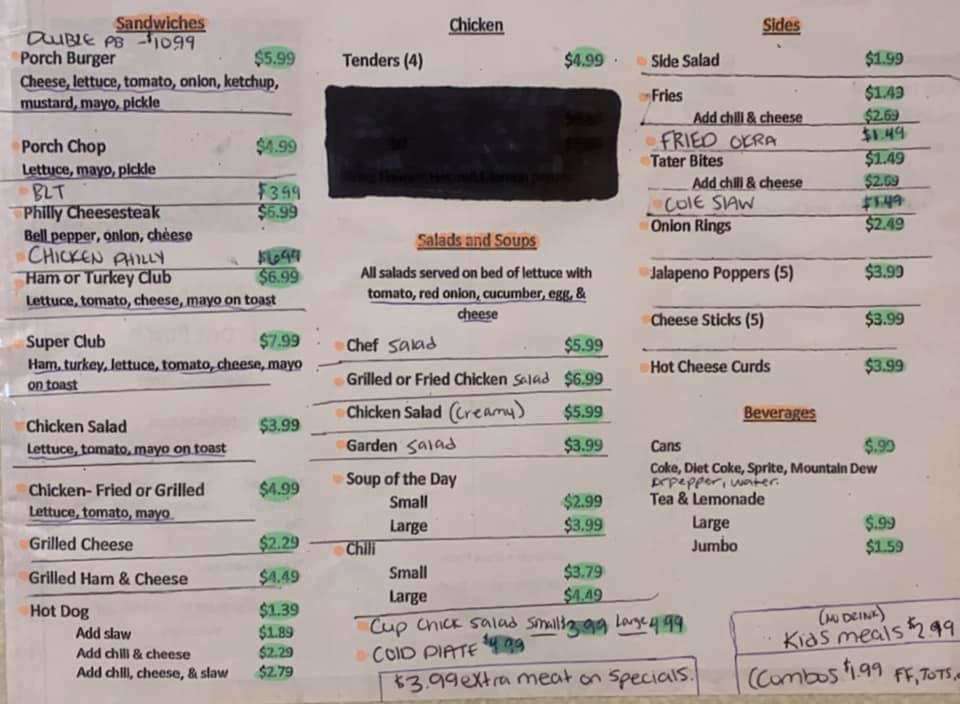 Sandwiches
DOUBLE PB - $10.99
Porch Burger $5.99
Cheese, lettuce, tomato, onion, ketchup,
mustard, mayo, pickle
Porch Chop $4.99
Lettuce, mayo, pickle
BLT $3.99
Philly Cheesesteak $6.99
Bell pepper, onion, cheese
CHICKEN PHILLY $6.99
Ham or Turkey Club $6.99
Lettuce, tomato, cheese, mayo on toast
Super Club $7.99
Ham, turkey, lettuce, tomato, cheese, mayo
on toast
Chicken Salad $3.99
Lettuce, tomato, mayo on toast
Chicken- Fried or Grilled $4.99
Lettuce, tomato, mayo
Grilled Cheese $2.29
Grilled Ham & Cheese $4.49
Hot Dog $1.39
Add slaw $1.89
Add chili & cheese $2.29
Add chili, cheese, & slaw $2.79
Chicken
Tenders (4) $4.99
Salads and Soups
All salads served on bed of lettuce with
tomato, red onion, cucumber, egg, &
cheese
Chef salad $5.99
Grilled or Fried Chicken salad $6.99
Chicken Salad (creamy) $5.99
Garden salad $3.99
Soup of the Day
Small $2.99
Large $3.99
Chili
Small $3.79
Large $4.49
Cup chick salad small $3.99 Large 4.99
COLD PLATE $4.99
$3.99 extra meat on specials.
Sides
Side Salad $1.99
Fries $1.49
Add chili & cheese $2.69
FRIED OKRA $1.49
Tater Bites $1.49
Add chili & cheese $2.69
COLE SLAW $1.49
Onion Rings $2.49
Jalapeno Poppers (5) $3.99
Cheese Sticks (5) $3.99
Hot Cheese Curds $3.99
Beverages
Cans $.90
Coke, Diet Coke, Sprite, Mountain Dew
Drpepper, water.
Tea & Lemonade
Large $.99
Jumbo $1.59
(NO DRINK)
Kids meals $2.99
(Combos $1.99 FF, TOTS,